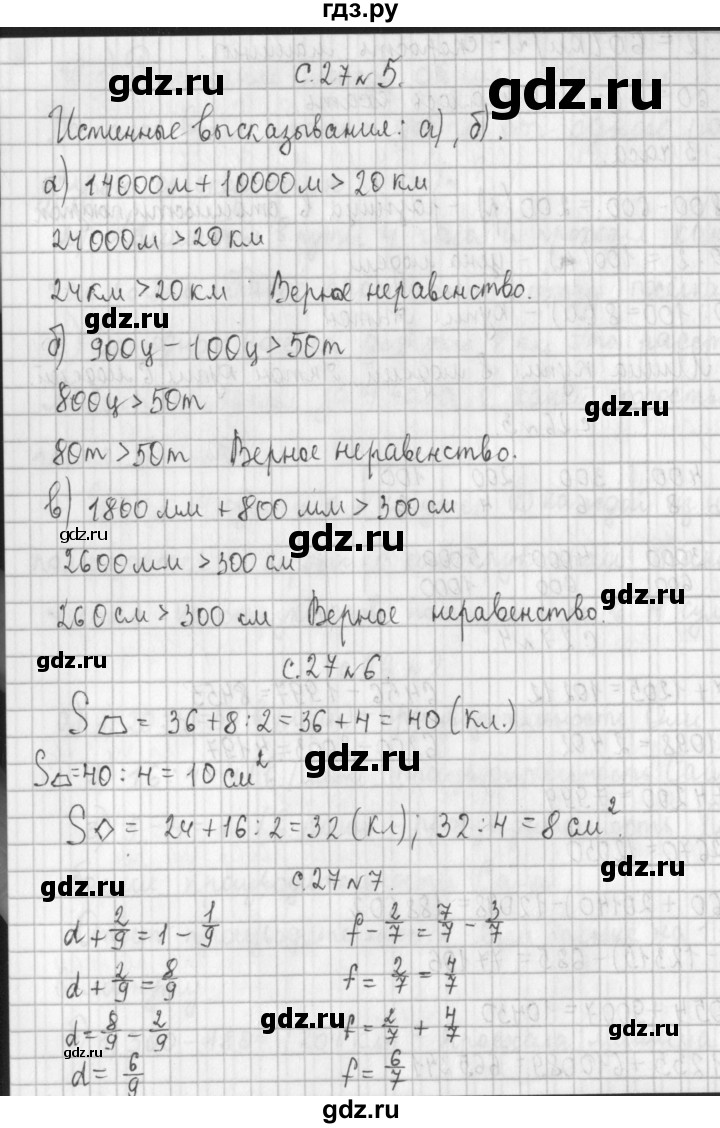 гдз.ру
gdz.ru
с.27 № 5.
gdz.ru
Истинные высказывания: а), б).
а) 14000м + 10000м > 20 км
24000м > 20км
24км > 20 км Верное неравенство.
gdz.ru
б) 900ц - 100ц > 50т
800ц > 50т
gdz.ru
80т > 50т Верное неравенство.
в) 1800 мм + 800 мм > 300 см
gdz.ru
gdz.ru
2600мм > 300 см
gdz.ru
260см > 300 см Верное неравенство.
gdz.ru
с.27 № 6.
S⏢ = 36 + 8 : 2 = 36 + 4 = 40 (кл.)
gdz.ru
S⏢ = 40 : 4 = 10 см²
S◇ = 24 + 16 : 2 = 32 (кл); 32 : 4 = 8 см².
gdz.ru
gdz.ru
с.27 № 7.
d + 2/9 = 1 - 1/9 f - 2/7 = 7/7 - 3/7
d + 2/9 = 8/9 f = 2/7 = 4/7
gdz.ru
d = 8/9 - 2/9 f = 2/7 + 4/7
gdz.ru
gdz.ru
d = 6/9 f = 6/7
gdz.ru